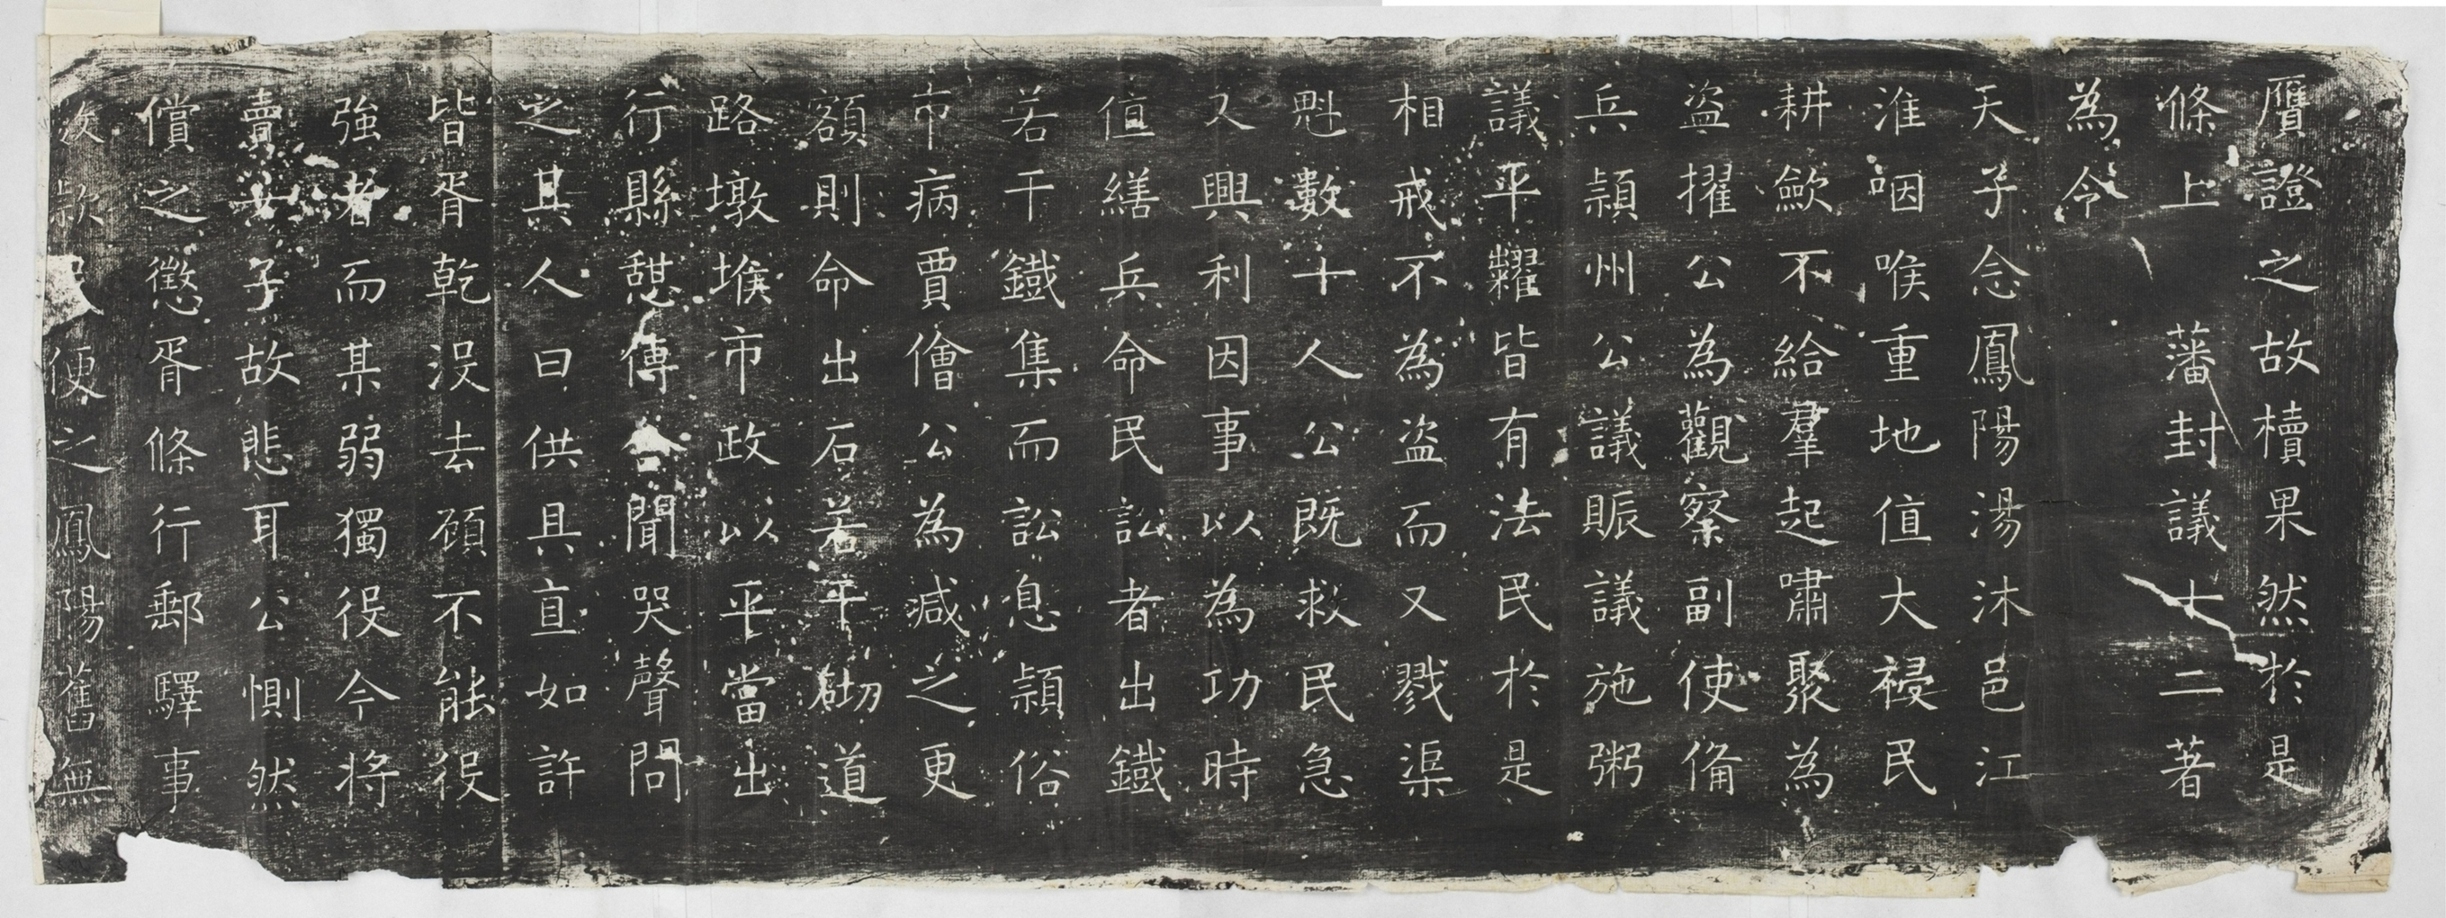 贋證之故櫝果然於是
條上藩封議十二著
為令
天子念鳳陽湯沐邑江
淮咽喉重地值大祲民
耕歛不給羣起嘯聚為
盜擢公為觀察副使俻
兵潁州公議賑議施粥
議平糶皆有法民於是
相戒不為盜而又戮渠
魁數十人公既救民急
又興利因事以為功時
值繕兵命民訟者出鐵
若干鐵集而訟息潁俗
市病賈儈公為減之更
額則命出石若平砌道
路墩堠市政以平當出
行縣憇傳舍聞哭聲問
之其人曰供具直如許
皆胥乾沒去顧不能役
強者而某弱獨役今將
賣子故悲耳公惻然
償之懲胥條行郵驛事
便之鳳陽舊無